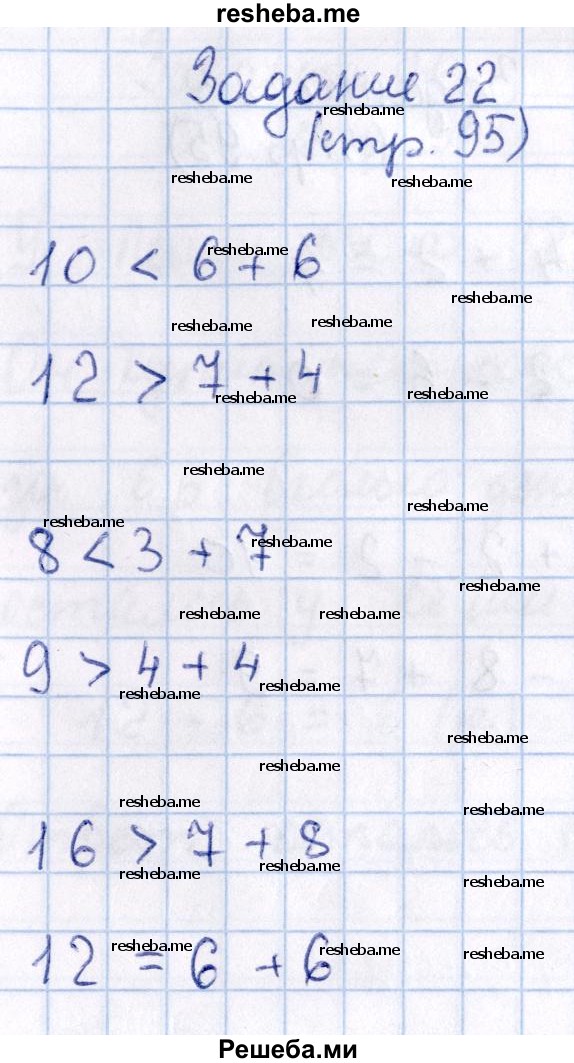 resheba.me
Задание 22
resheba.me
(стр. 95)
resheba.me
resheba.me
10 < 6 + 6
resheba.me
resheba.me
resheba.me
resheba.me
12 > 7 + 4
resheba.me
resheba.me
resheba.me
resheba.me
resheba.me
8 < 3 + 7
resheba.me
resheba.me
resheba.me
resheba.me
9 > 4 + 4
resheba.me
resheba.me
resheba.me
resheba.me
resheba.me
resheba.me
16 > 7 + 8
resheba.me
resheba.me
resheba.me
12 = 6 + 6
resheba.me
resheba.me
resheba.me
Решеба.ми